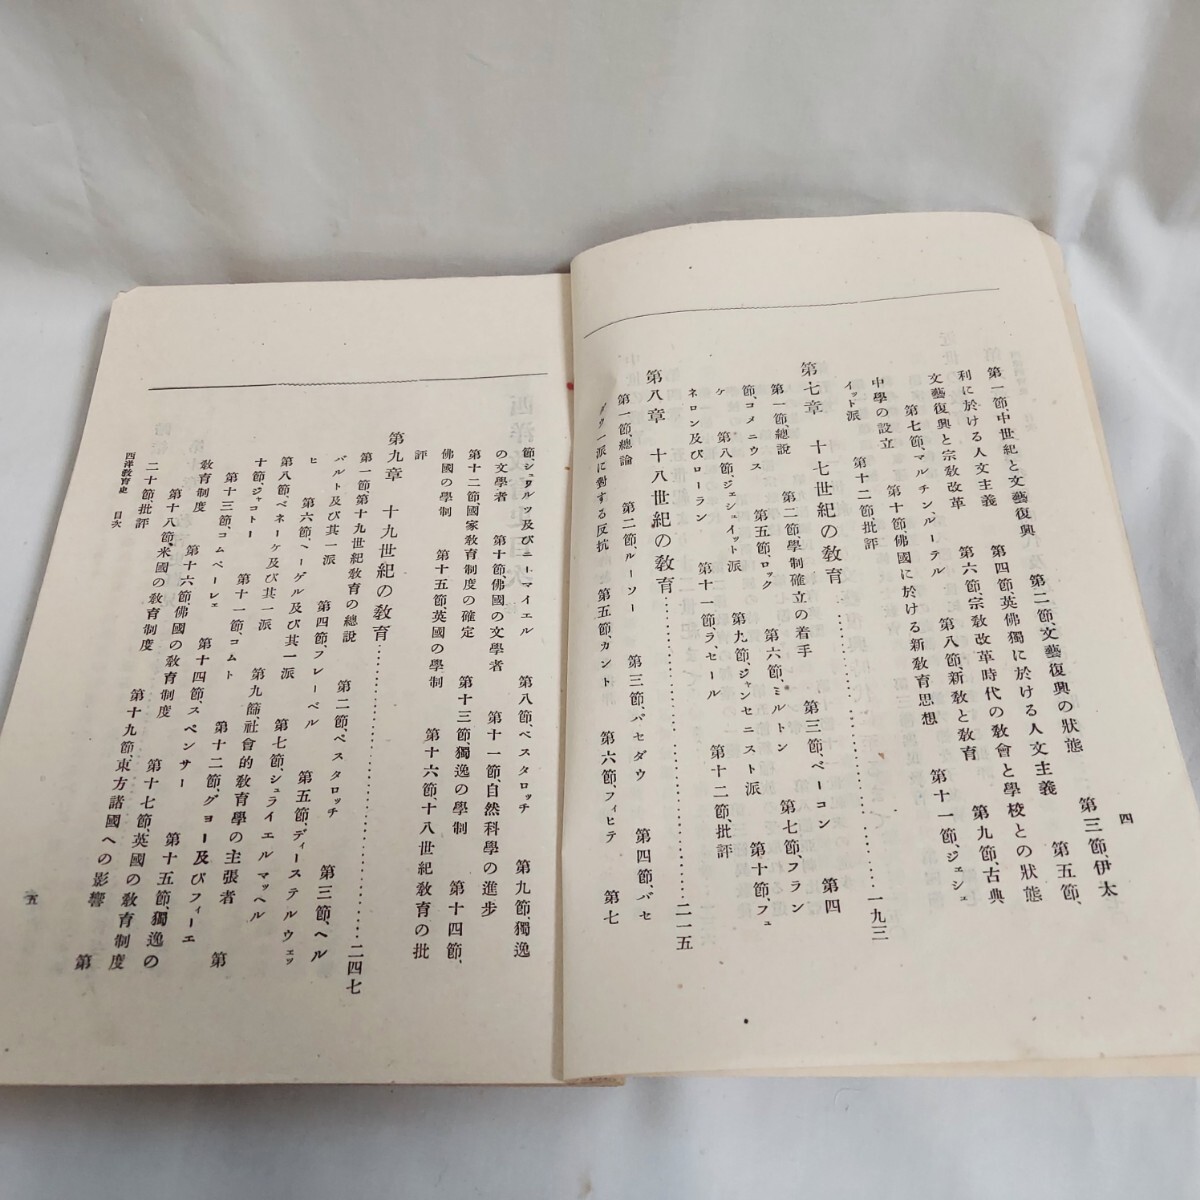 四
第一節、中世紀と文藝復興　第二節、文藝復興の狀態　第三節、伊太
利に於ける人文主義　第四節英佛獨に於ける人文主義　第五節、
文藝復興と宗敎改革　第六節、宗敎改革時代の敎會と學校との狀態
第七節マルチン、ルーテル　第八節新敎と敎育　第九節、古典
中學の設立　第十節佛國に於ける新敎育思想　第十一節、ジェシュ
イット派　第十二節批評
第七章　十七世紀の敎育……………一九三
第一節、總說　第二節、學制確立の着手　第三節、ベーコン　第四
節、コメニウス　第五節、ロック　第六節、ミルトン　第七節、フラン
ケ　第八節、ジェシュイット派　第九節、ジャンセニスト派　第十節、フェ
ネロン及びローラン　第十一節ラ、セール　第十二節、批評
第八章　十八世紀の敎育……………二一五
第一節、總論　第二節、ルーソー　第三節、バセダウ　第四節、バセ
ダウ一派に對する反抗　第五節、カント　第六節、フィヒテ　第七
節、シュワルツ及びニーマイエル　第八節、ペスタロッチ　第九節、獨逸
の文學者　第十節、佛國の文學者　第十一節、自然科學の進步
第十二節、國家敎育制度の確定　第十三節獨逸の學制　第十四節、
佛國の學制　第十五節英國の學制　第十六節、十八世紀敎育の批
評
第九章　十九世紀の敎育……………二四七
第一節、第十九世紀敎育の總說　第二節、ペスタロッチ　第三節、ヘル
バルト及び其一派　第四節、フレーベル　第五節、ディーステルウェッ
ヒ　第六節、ヘーゲル及び其一派　第七節シュライエルマッヘル
第八節、ベネーケ及び其一派　第九節、社會的敎育學の主張者　第
十節、ジャコトー　第十一節、コムト　第十二節、グヨー及びフィーエ
第十三節、コムペーレェ　第十四節、スペンサー　第十五節、獨逸の
敎育制度　第十六節佛國の敎育制度　第十七節、英國の敎育制度
第十八節、米國の敎育制度　第十九節、東方諸國への影響　第
二十節、批評
西洋敎育史　目次
五